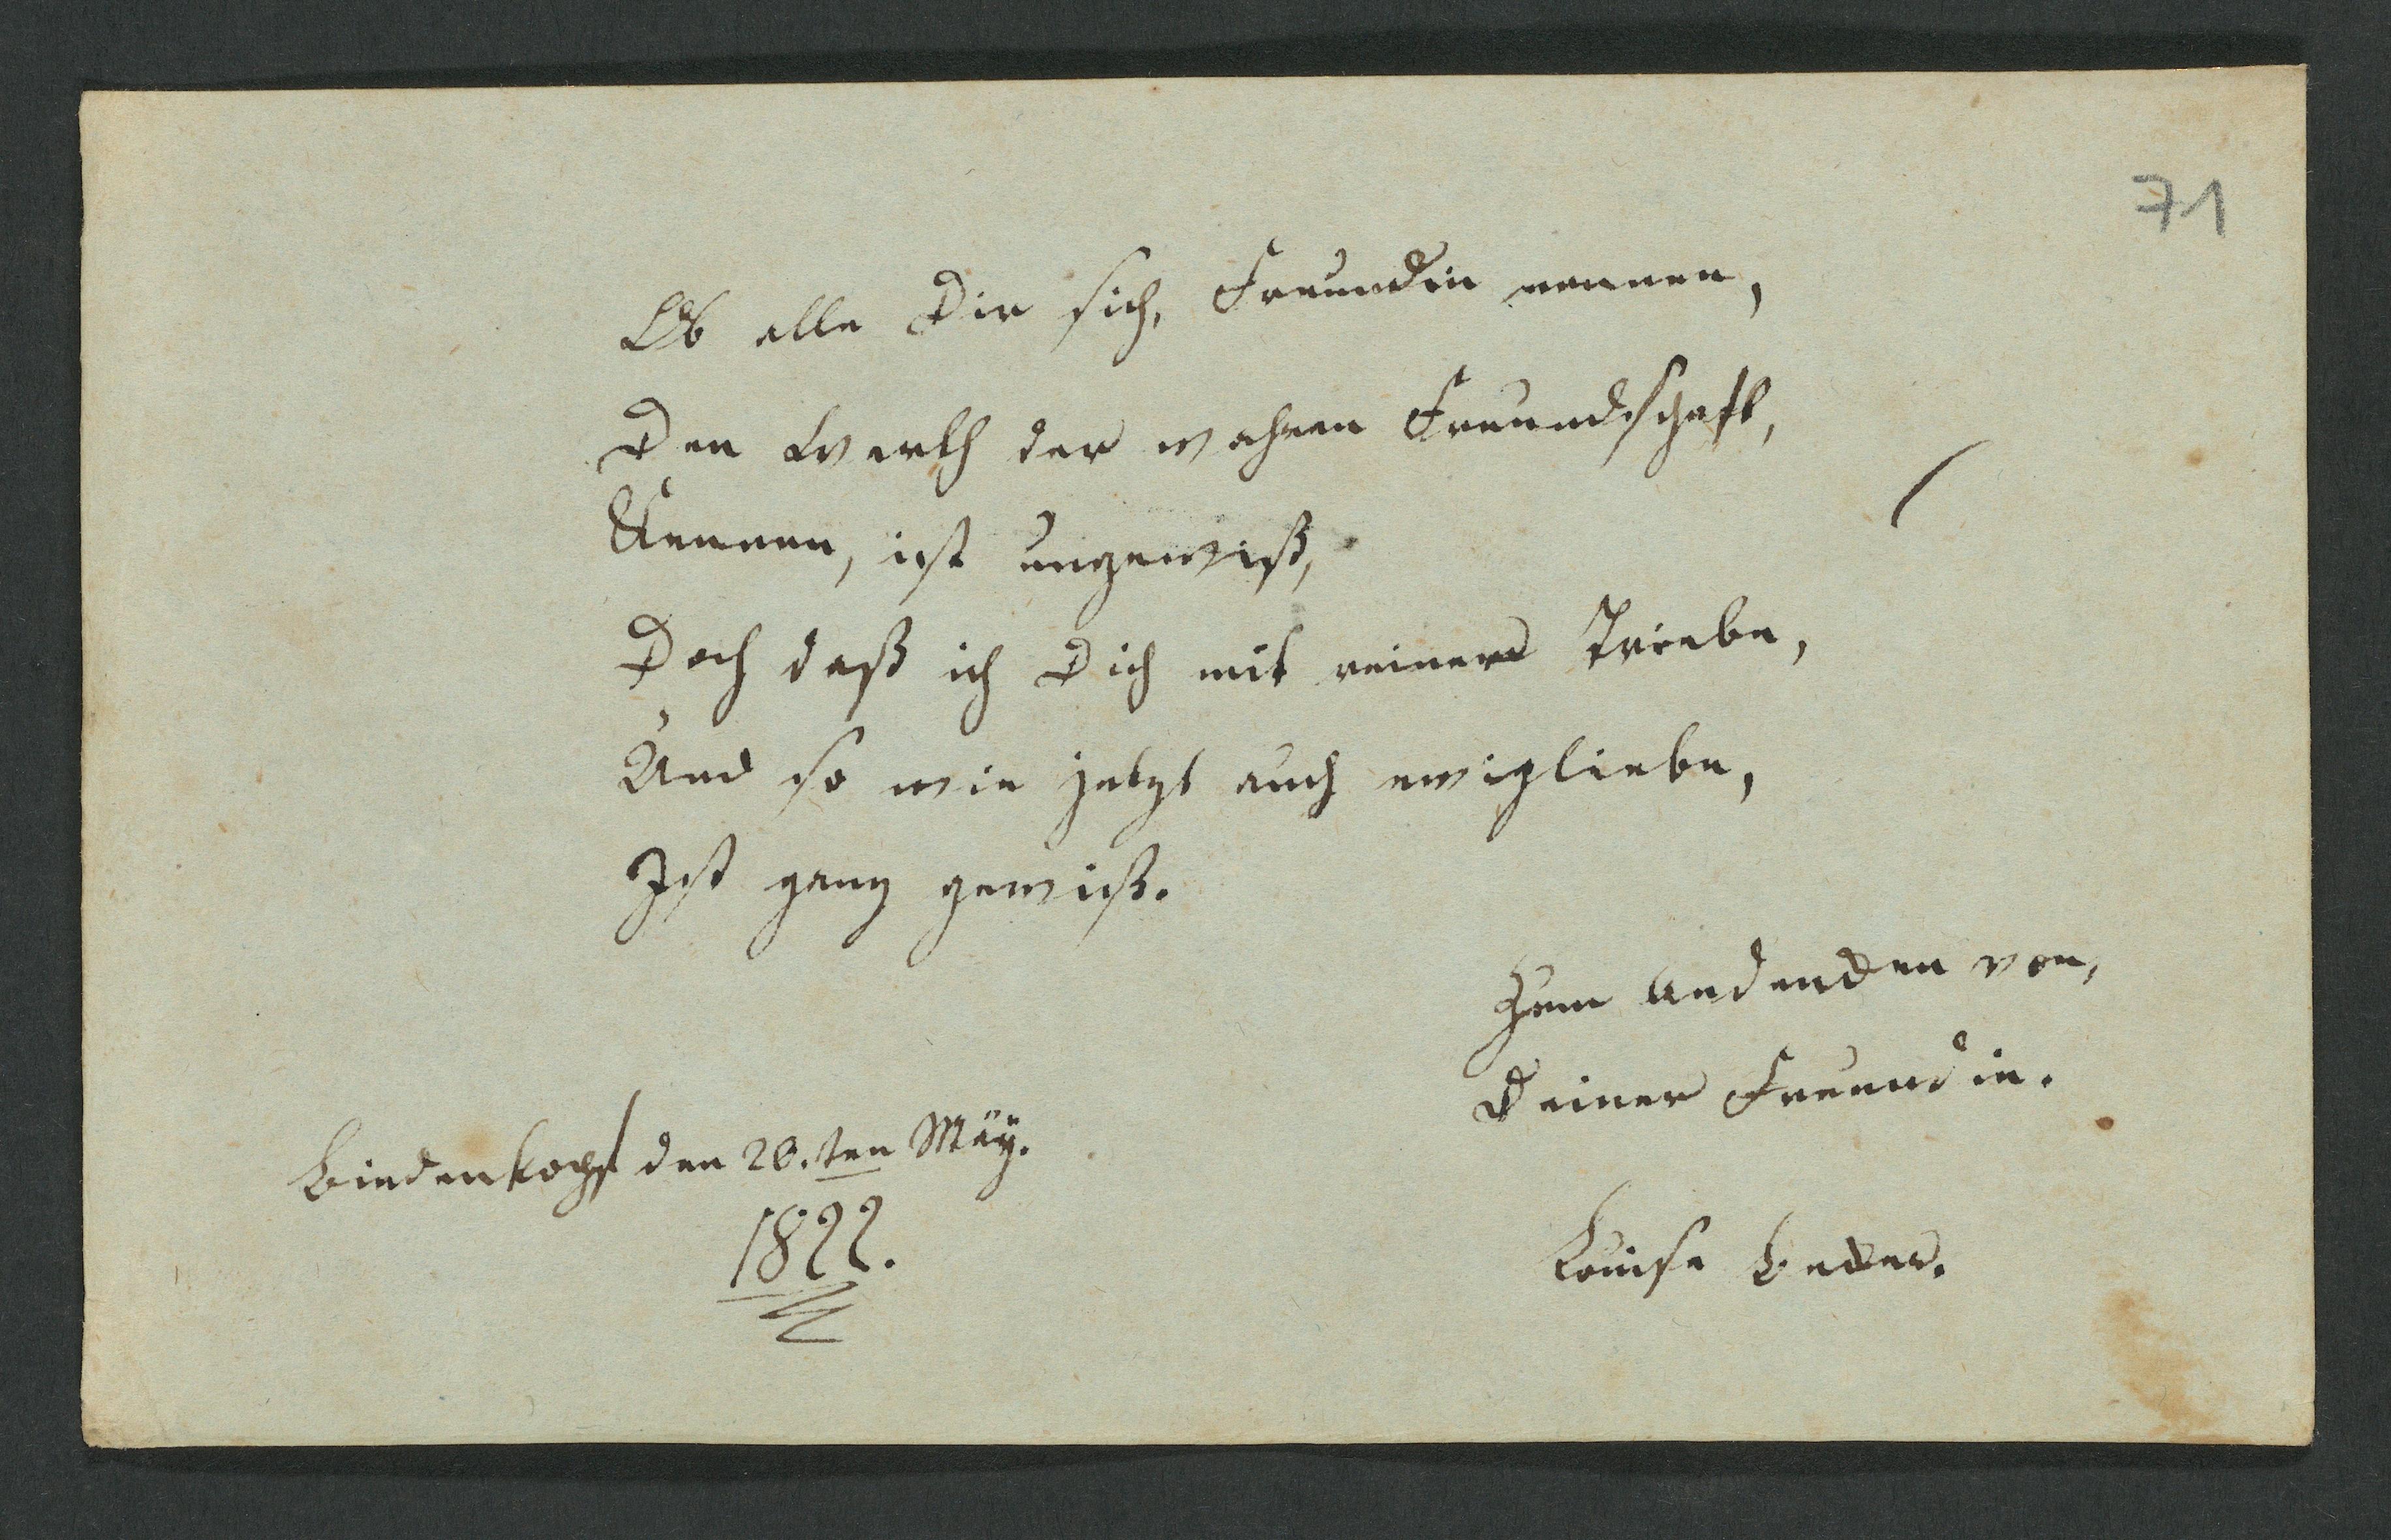 71
Ob alle Dir sich, Freundin nennen,
Den Werth der wahren Freundschaft,
Kennen, ist ungewiß,
Doch daß ich Dich mit reinem Triebe,
Und so wie jetzt auch ewigliebe,
Ist ganz gewiß.
Zum Andencken von,
Deiner Freundin.
Biedenkopf den 20.ten Mäÿ.
1822.
Louise Becker.